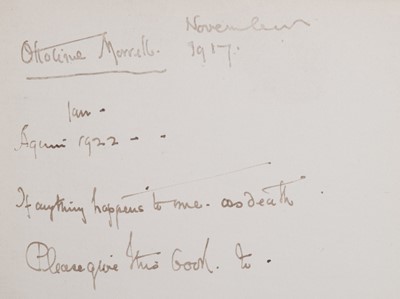 Ottoline Morrell.
November
1917.
Jan -
Again 1922 - -
If anything happens to me. as death.
Please give this book. to.